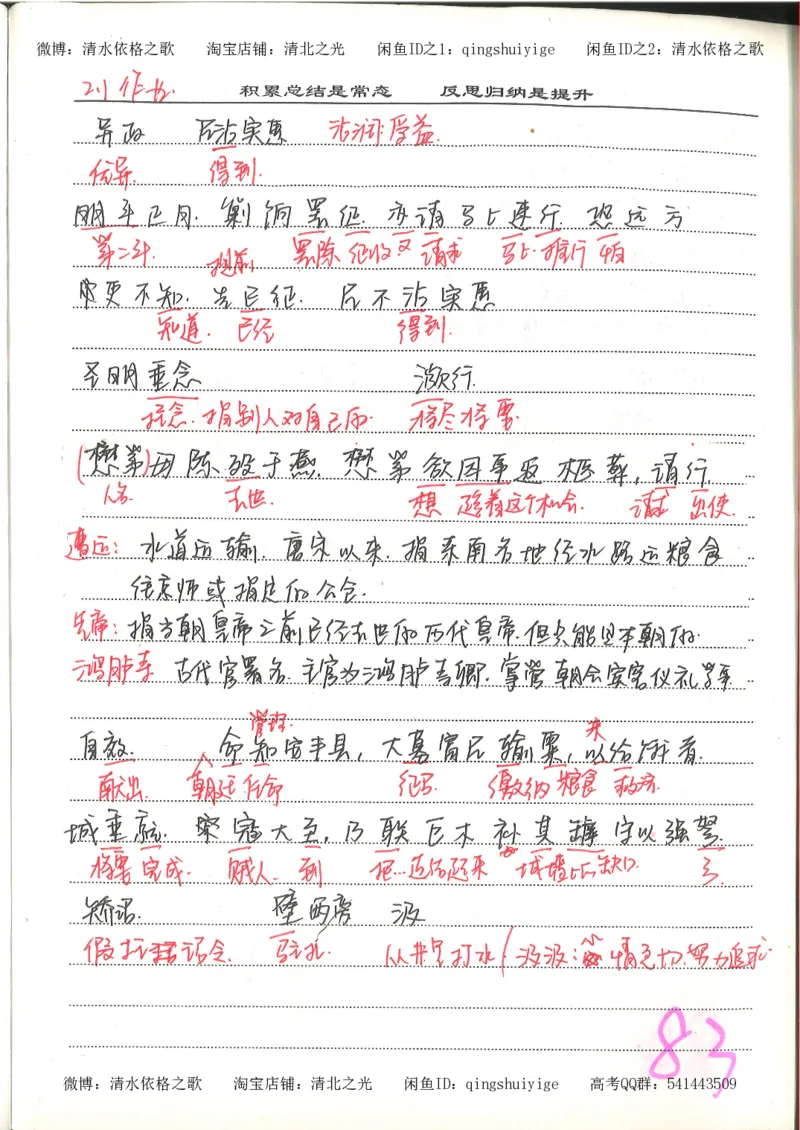 微博：清水依格之歌 淘宝店铺：清北之光 闲鱼ID之1：qingshuiyige 闲鱼ID之2：清水依格之歌
积累总结是常态 反思归纳是提升
异政 民沾实惠 沾润受益.
优异 得到.
明年正月. 剿饷罢征. 亦请马上速行. 恐远方
第二年. 提前 罢除 征收 请求 马上 推行
吏不知. 先已征. 民不沾实惠
知道. 已经 得到.
圣明垂念 濒行.
挂念. 指别人对自己的. 将尽将要.
(懋第)母陈殁于燕. 懋第欲因事返柩葬, 请行.
人名. 去世. 想 趁着这个机会. 请求 出使.
漕运: 水道运输. 唐宋以来. 指东南各地经水路运粮食
往京师或指定的公仓.
先帝: 指当朝皇帝之前已经去世的历代皇帝. 但只能是本朝的.
鸿胪寺 古代官署名. 主官为鸿胪寺卿. 掌管朝会宾客仪礼等事
管理. 来
自效. 命知安丰县, 大募富民输粟, 以给饥者.
献出. 朝廷任命 征召. 缴纳 粮食 救济.
城垂完. 寇大至, 乃联巨木补其罅 守以强弩.
将要 完成. 贼人. 到 把...连结起来 城墙的缺口.
矫诏. 壁西旁 汲
假托诏令. 驻扎. 从井里打水/汲汲: 心情急切. 努力追求
83
微博：清水依格之歌 淘宝店铺：清北之光 闲鱼ID：qingshuiyige 高考QQ群：541443509